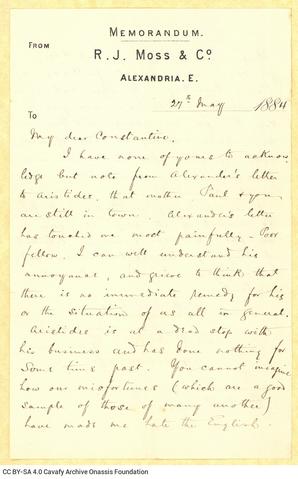 MEMORANDUM.
FROM
R. J. MOSS & Co
ALEXANDRIA. E.
27th May 1884
TO
My dear Constantine,
I have none of yours to acknow
ledge but note from Alexander's letter
to Aristides, that mother, Paul & you
are still in town. Alexander's letter
has touched me most painfully – Poor
fellow, I can well understand his
annoyance, and grieve to think that
there is no immediate remedy for his
or the situation of us all in general.
Aristides is at a dead stop with
his business and has done nothing for
some time past. You cannot imagine
how our misfortunes (which are a good
sample of those of many another)
have made me hate the English.
CC BY-SA 4.0 Cavafy Archive Onassis Foundation